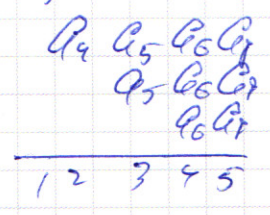 a₄ a₅ a₆ a₇
a₅ a₆ a₇
a₆ a₇
1 2 3 4 5